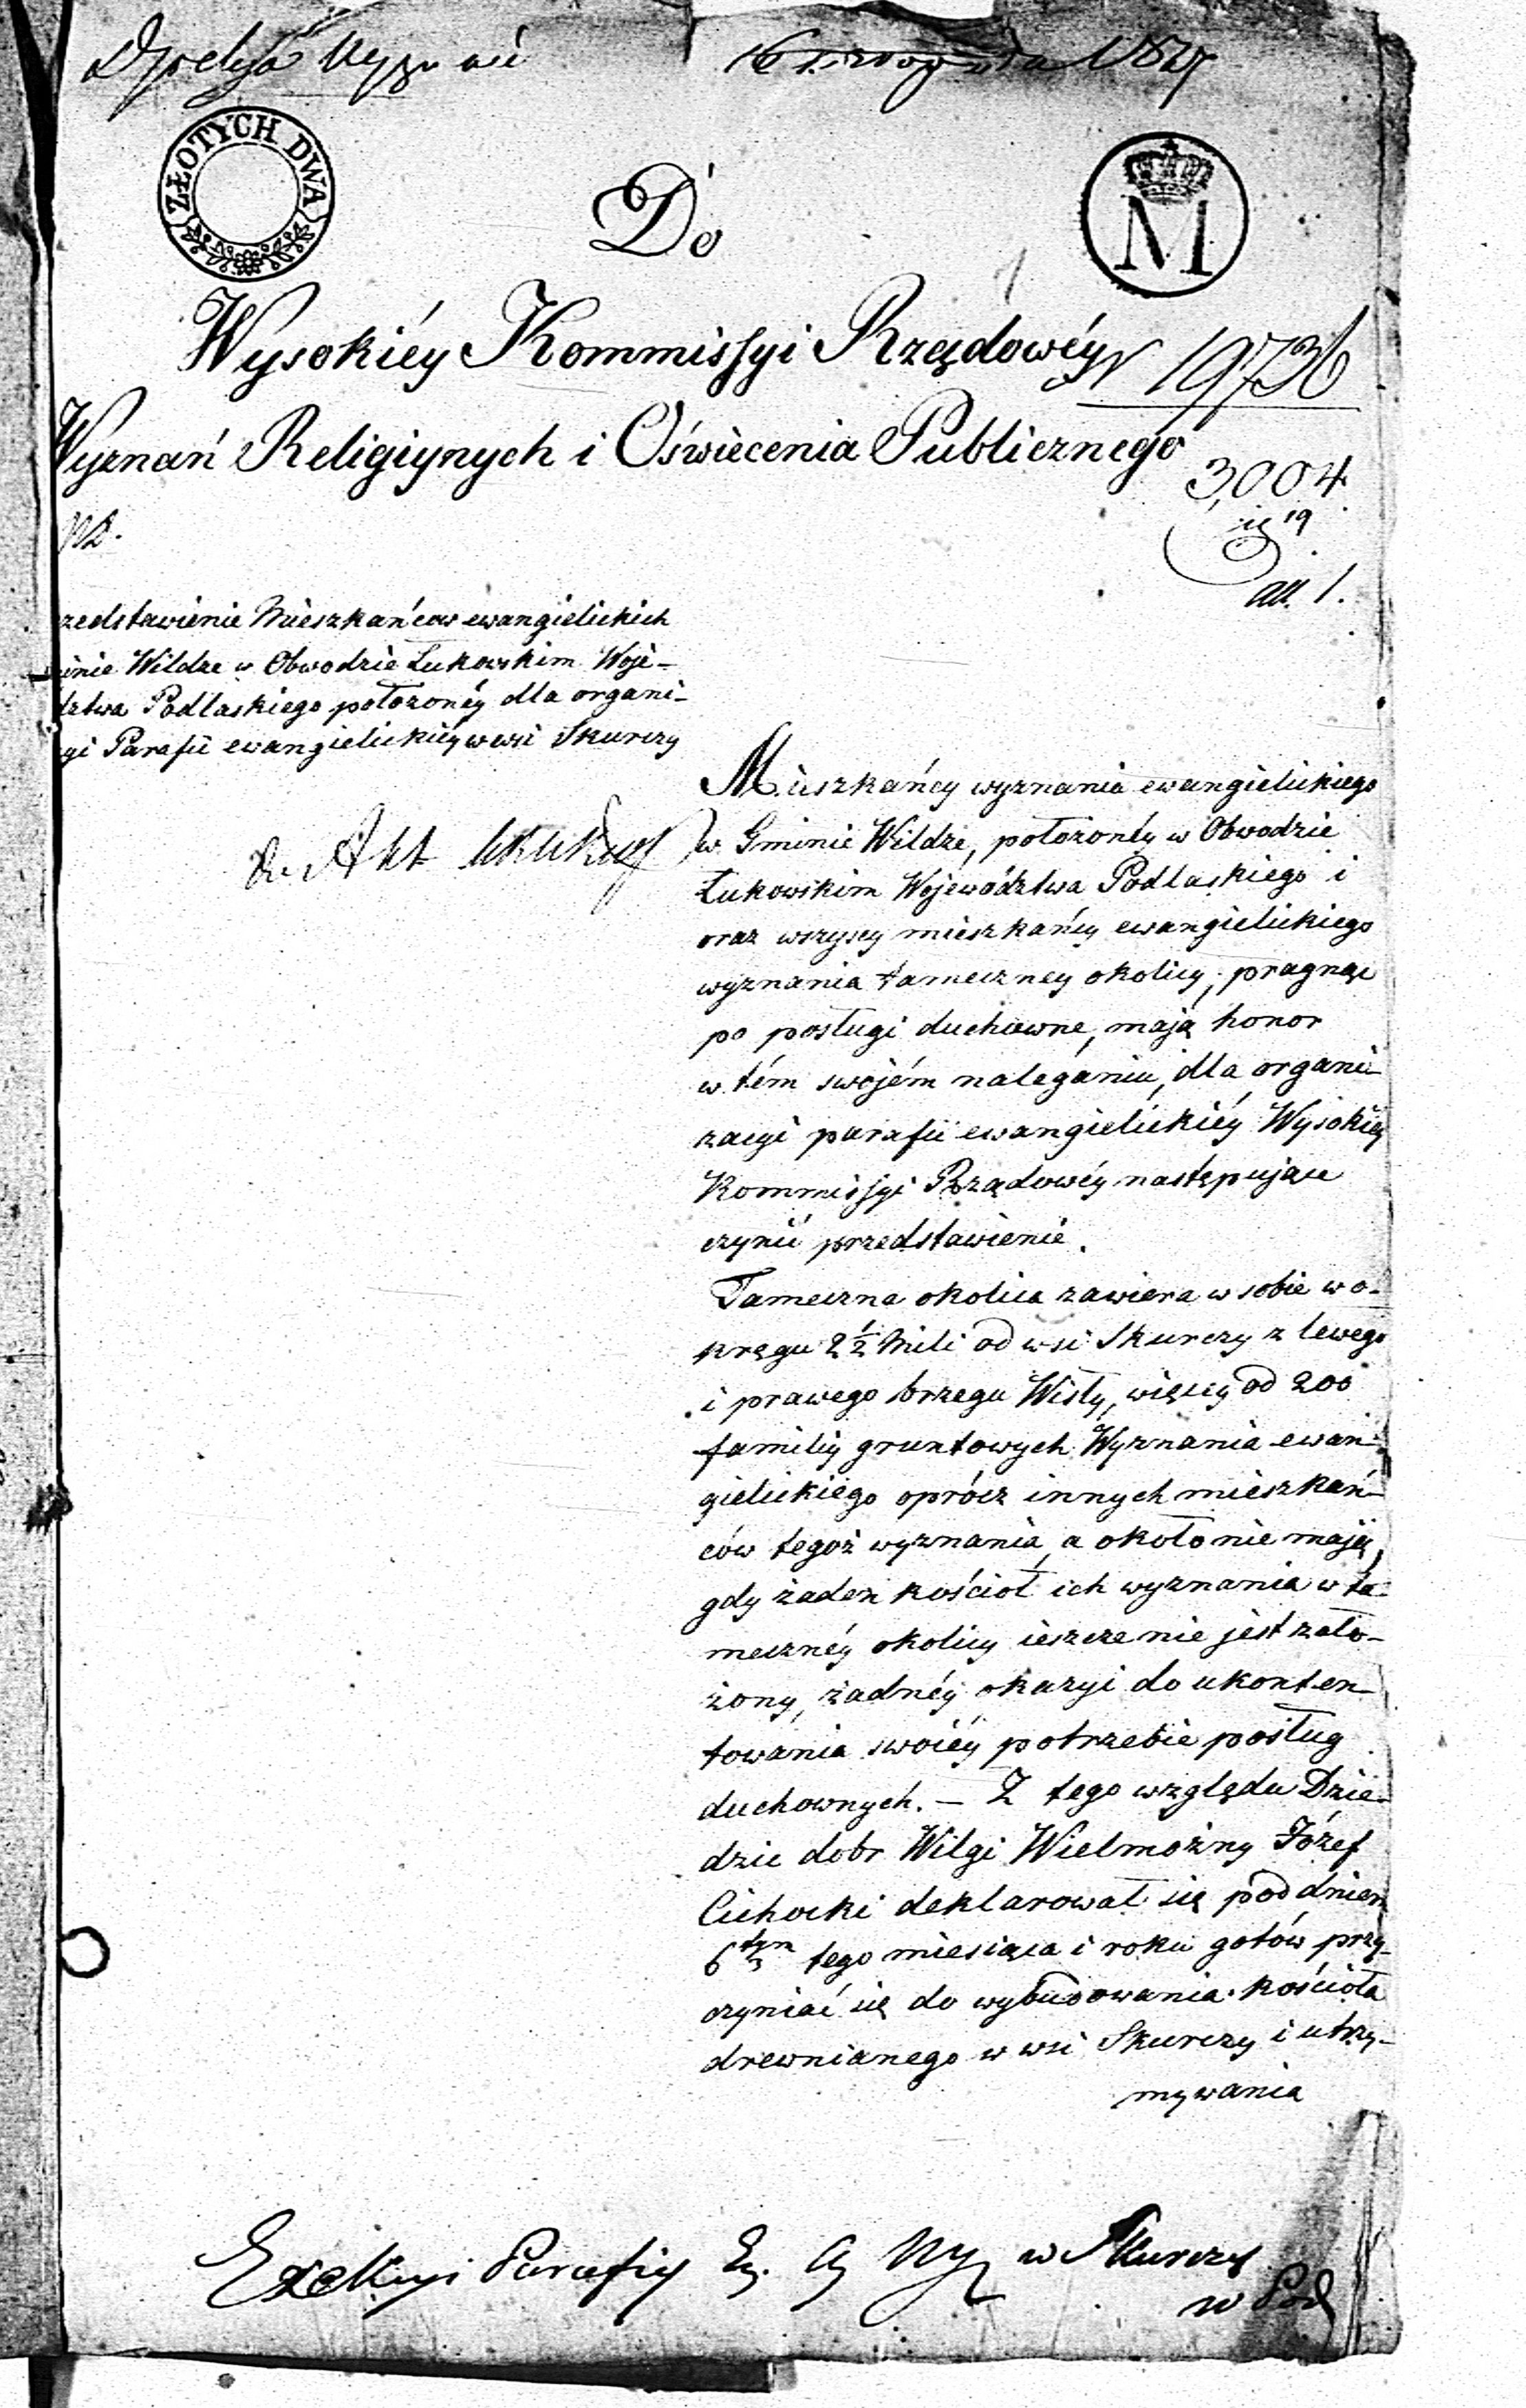 16 1827
ZŁOTYCH DWA
M
Do
Wysokiéy Kommissyi Rządowéy
N 19736
Wyznań Religiynych i Oświecenia Publicznego
3004
19
all. 1.
zedstawienie Mieszkańcow ewangielickich
inie Wildze w Obwodzie Łukowskim Woje-
dztwa Podlaskiego położonéy dla organi-
yi Parafii ewangielickiéy w wsi Skurczy
Mieszkańcy wyznania ewangielickiego
w Gminie Wildze, położonéy w Obwodzie
Łukowskim Województwa Podlaskiego i
oraz wszyscy mieszkańcy ewangielickiego
wyznania tameczney okolicy, pragnąc
po posługi duchowne, mają honor
w tém swojém naleganiu, dla organi-
zacyi parafii ewangielickiéy Wysokiéy
Kommissyi Rządowéy następujące
czynić przedstawienie.
Tameczna okolica zawiera w sobie w o-
kręgu 2½ Mili od wsi Skurczy z lewego
i prawego brzegu Wisły, więcey od 200
familiy gruntowych Wyznania ewan-
gielickiego oprócz innych mieszkań-
ców tegoż wyznania, a około nie mają,
gdy żaden kościoł ich wyznania w ta-
mecznéy okolicy ieszcze nie jest zało-
żony, żadnéy okazyi do ukonten-
towania swoiéy potrzebie posług
duchownych. — Z tego względu Dzie-
dzic dobr Wilgi Wielmożny Józef
Cichocki deklarował się pod dniem
6tym tego miesiąca i roku gotów przy-
czyniać się do wybudowania kościoła
drewnianego w wsi Skurczy i utrzy-
mywania
Parafiy Ew. w Skurczy
w Pod